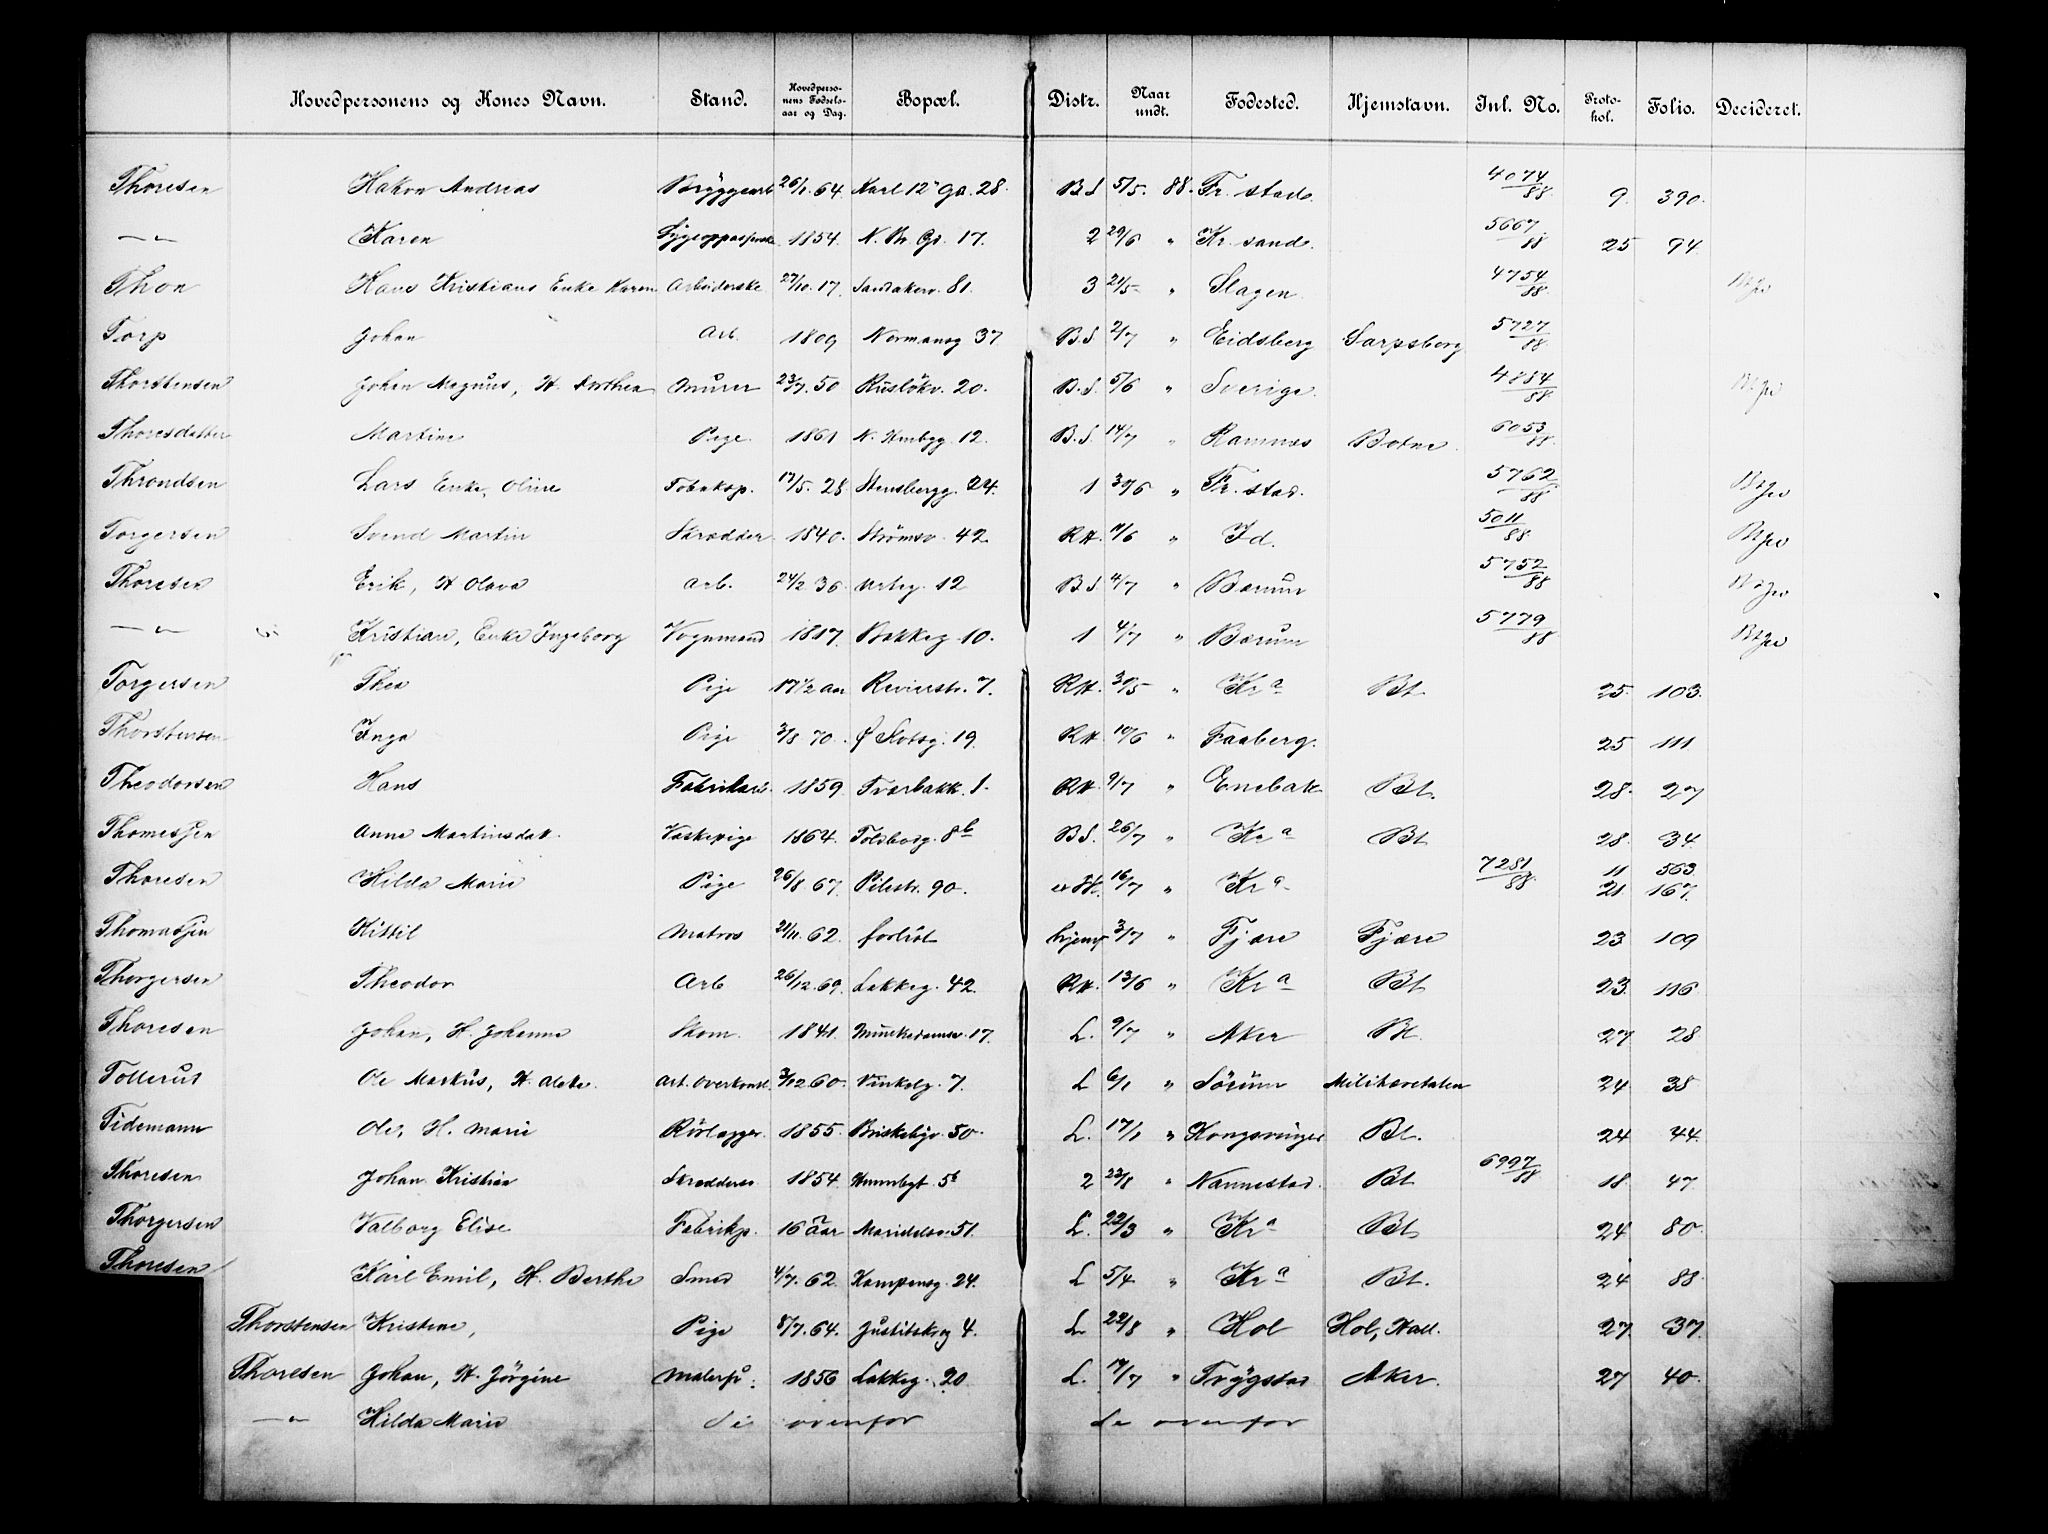 Hovedpersonens og Kones Navn. Stand. Hovedpersonens Fødselsaar og Dag. Bopæl. Distr. Naar undt. Fødested. Hjemstavn. Inl. No. Protokol. Folio. Decideret.
Thoresen Hakon Andreas Bryggearb 26/1 64. Karl 12' Ga. 28. B S 5/5. 88. Fr. stad. 4074/88 9. 390.
—"— Karen Sygeoppasserske 1854. N. Br. Gr. 17. 2 29/6 " Kr. sand. 5667/88 25 94.
Thon Hans Kristians Enke Karen Arbeiderske 27/10. 17. Sandakerv. 81. 3 24/5 " Slagen. 4754/88
Torp Johan Arb. 1809 Normansg 37. B. S. 2/7 " Eidsberg Sarpsborg 5727/88
Thorstensen Johan Magnus, H. Dorthea Murer 23/7. 50 Rusløkv. 20. B. S. 5/6 " Sverige. 4884/88
Thoresdatter Martine Pige. 1861 N. Hmbyg. 12. B. S. 14/7 " Ramnes Botne. 6053/88
Throndsen Lars Enke, Oline Tobaksp. 17/5. 28. Stensbergg. 24. 1 30/6 " Fr. stad. 5762/88
Torgersen Svend Martin Skrædder 1840. Strømsv. 42. RH. 11/6 " Id. 5011/88
Thoresen Erik, H Olava Arb. 24/2 36. Urteg. 12 B S 4/7 " Bærum 5752/88
—"— Kristian, Enke Ingeborg Vognmand 1817. Bakkeg. 10. 1 4/7 " Bærum 5779/88
Torgersen Thea Pige 17 1/2 Aar Revierstr. 7. RH. 30/5 " Kra Bt. 25. 103.
Thorstensen Inga Pige 3/8 70. Ø Slotsg. 19. RH. 10/6 " Faaberg. 25 111
Theodorsen Hans Fabrikarb. 1859. Tværbakk. 1. RH. 9/7 " Enebak Bt. 28. 27
Thomessen Anne Martinsdat. Vaskepige 1864. Toldbodg. 8b B S. 26/7 " Kra Bt 28. 34.
Thoresen Hilda Marie Pige 26/8 67. Pilestr. 90. 16/7 " Kra 7281/88. 11 563.
21. 167.
Thomassen Kittil Matros 21/11. 62. forlist hjemv 3/7 " Fjære Fjære 23. 109
Thorgersen Theodor Arb 26/12. 69. Lakkeg. 42. RH. 13/6 " Kra Bt 23. 116.
Thoresen Johan, H. Johanne Skom. 1841. Munkedamsv. 17. L. 9/7 " Aker Bt. 27. 28.
Tollerud Ole Markus, H. Alette. Art. overkonst. 3/12 60. Vinkelg. 7. L 6/1 " Sørum Militæretaten 24. 38
Tidemann Ole, H. Marie Rørlægger. 1855. Briskebyv. 50. L. 17/1 " Kongsvinger Bt. 24 44.
Thoresen Johan Kristian Skrædders. 1854. Hmmbgt. 5b 2 23/8 " Nannestad. Bt 6997/88 18. 47.
Thorgersen Valborg Elise Fabrikp. 16 Aar Maridalsv. 51. L. 22/3 " Kra Bt 24 80.
Thoresen Karl Emil, H. Berthe Smed 4/7. 62. Kampensg. 24. L 5/4 " Kra Bt. 24 88.
Thorstensen Kristine, Pige 8/7. 64. Justitskeg 4. L. 22/8 " Hol Hol, Hall. 27. 37.
Thoresen Johan, H. Jørgine Malersv. 1856 Lakkeg. 20. L. 17/7 " Trygstad Aker. 27 40.
—"— Hilda Marie Se ovenfor Se ovenfor